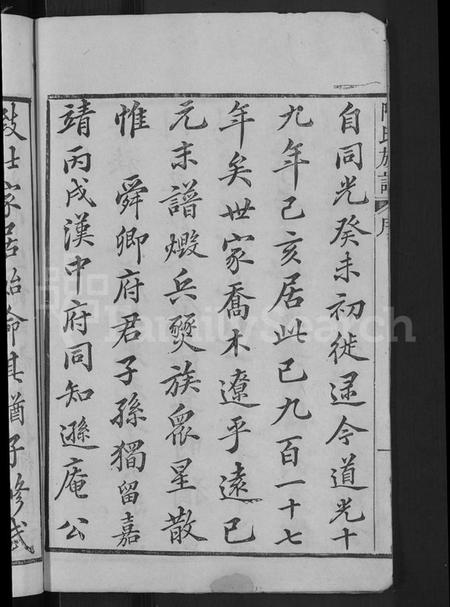 自同光癸未初徙逯今道光十
九年己亥居此已九百一十七
年矣世家喬木遼乎遠已
元末譜燬兵燹族眾星散
惟 舜卿府君子孫獨留嘉
靖丙戌漢中府同知遜庵公
致仕家居始命其猶子修武
氏族譜 序
一
FamilySearch